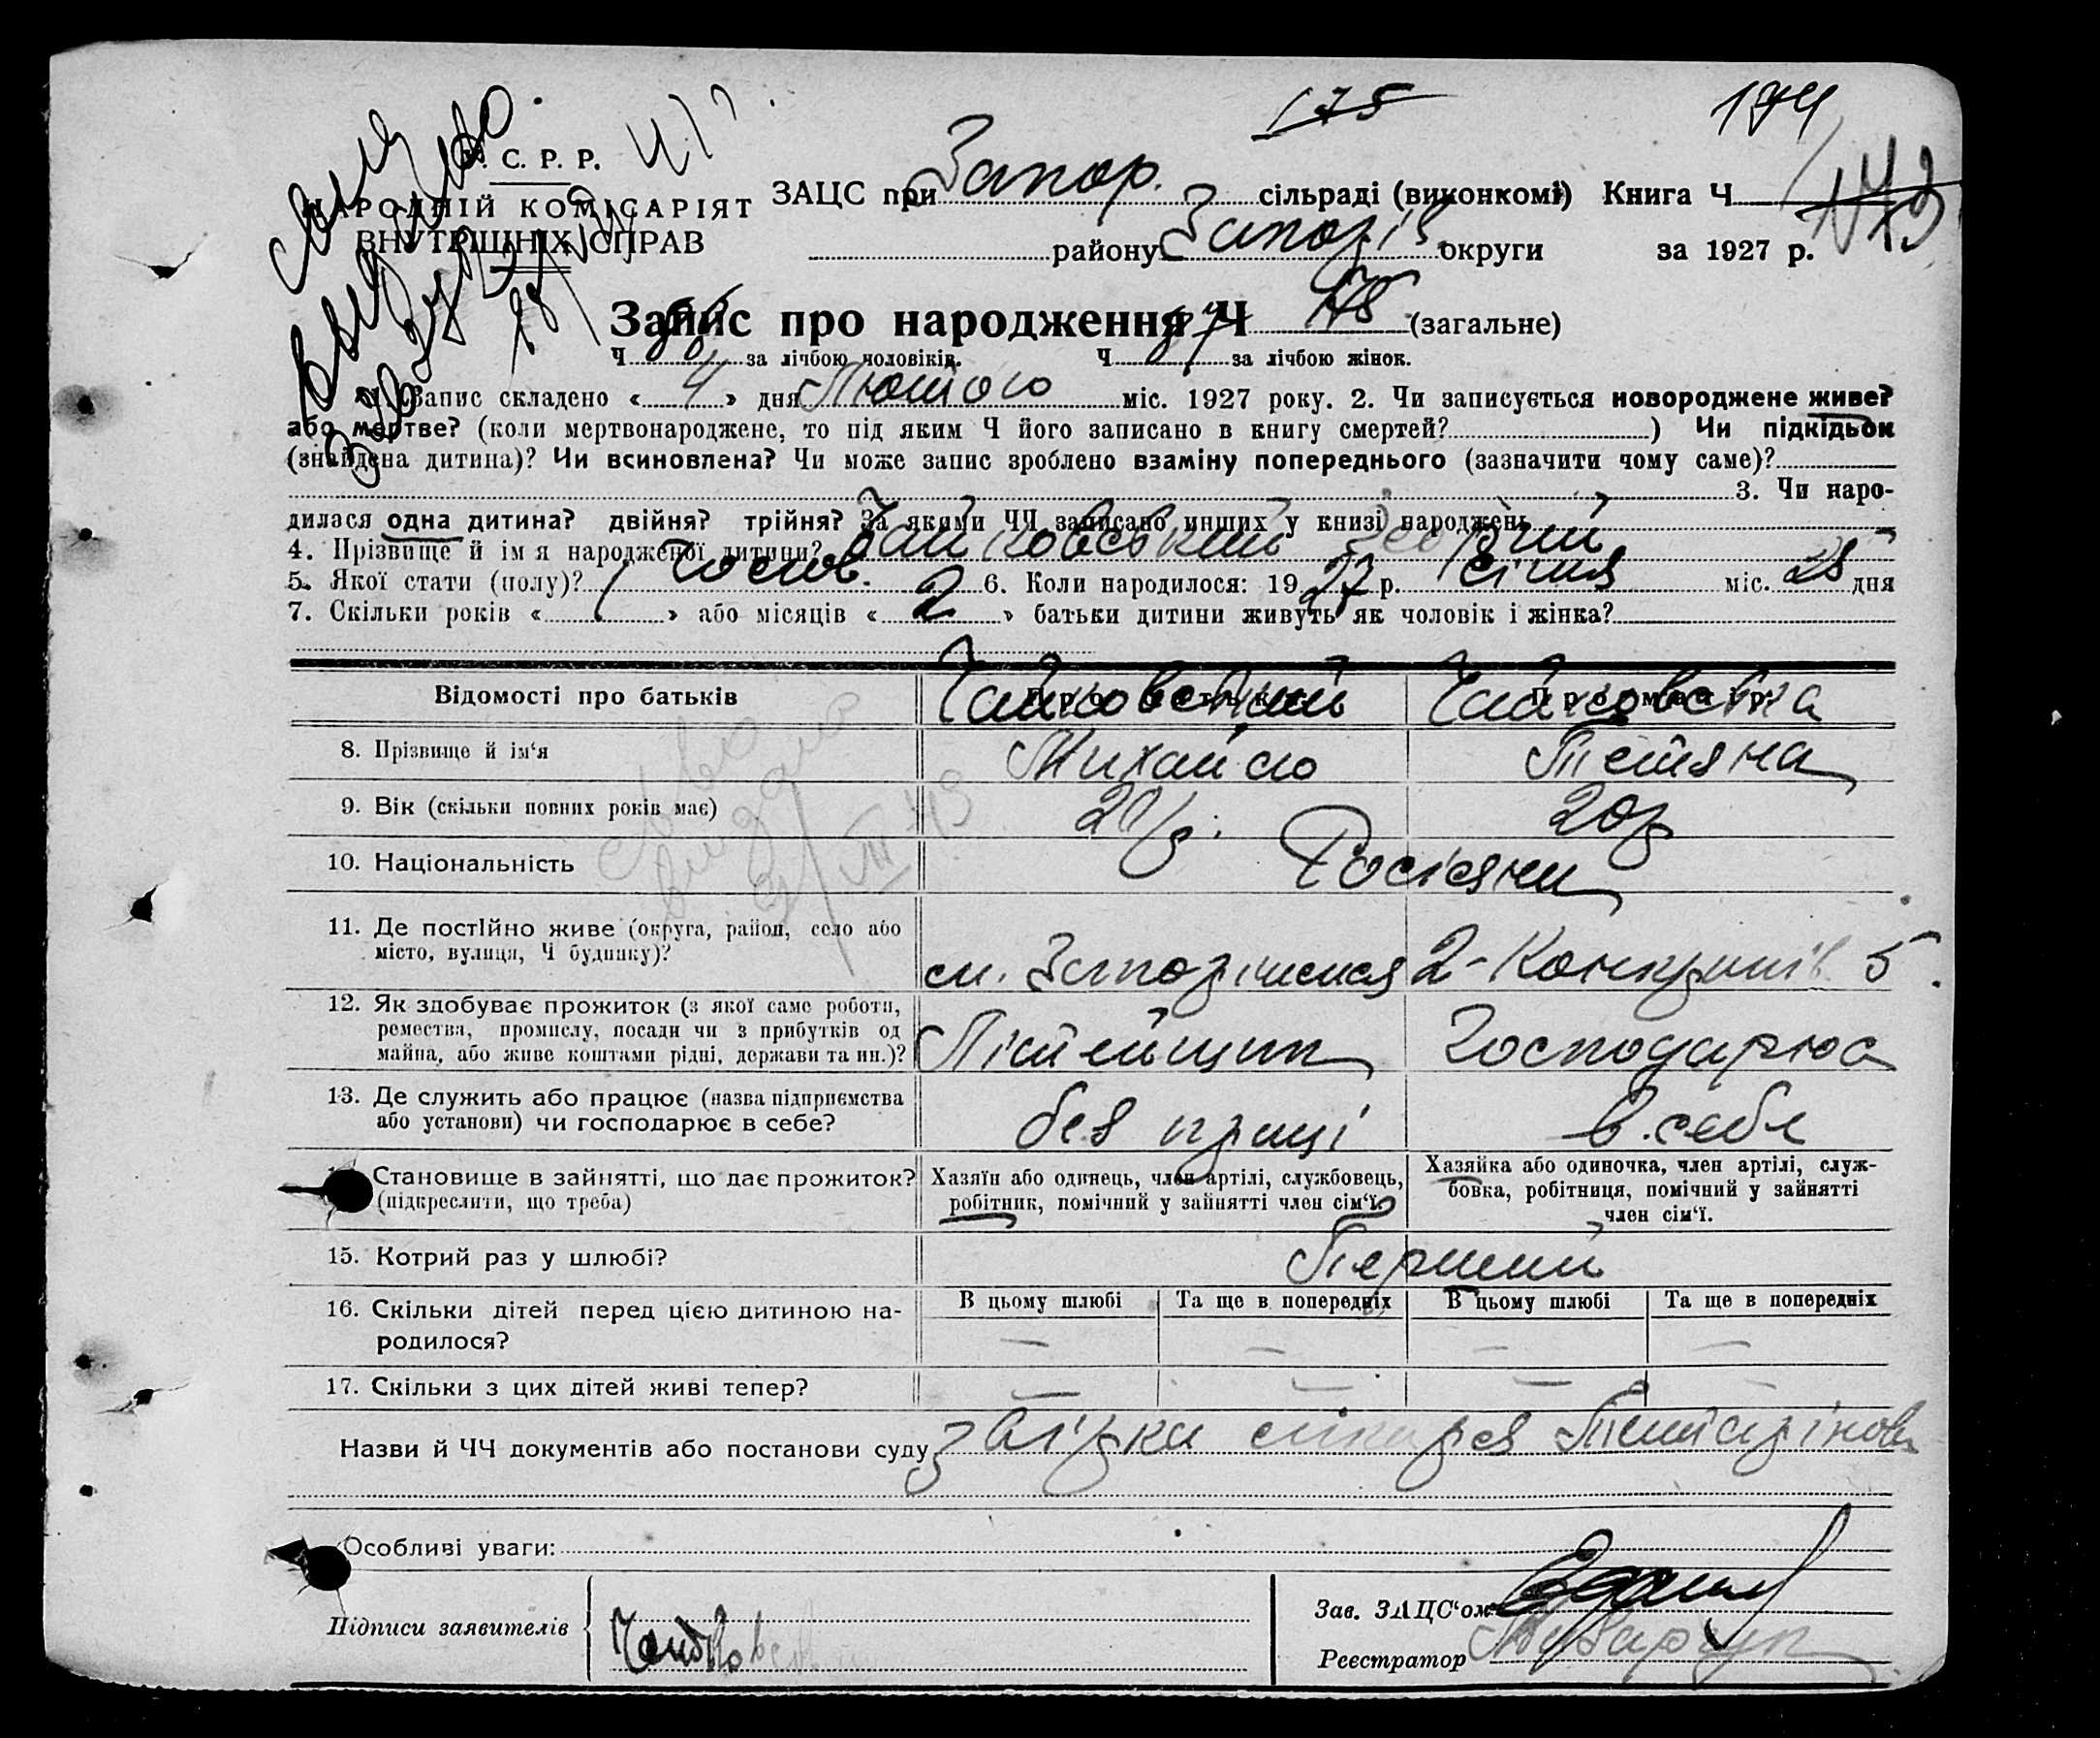 175
174
У. С. Р. Р.
НАРОДНІЙ КОМІСАРІЯТ
ВНУТРІШНІХ СПРАВ
ЗАЦС при Запор. сільраді (виконкомі) Книга Ч
району Запоріз. округи за 1927 р.
Запис про народження Ч 175 (загальне)
Ч за лічбою чоловіків. Ч за лічбою жінок.
1. Запис складено «4» дня Лютого міс. 1927 року. 2. Чи записується новороджене живе?
або мертве? (коли мертвонароджене, то під яким Ч його записано в книгу смертей?) Чи підкідьок
(знайдена дитина)? Чи всиновлена? Чи може запис зроблено взаміну попереднього (зазначити чому саме)?
3. Чи наро-
дилася одна дитина? двійня? трійня? За якими ЧЧ записано инших у книзі народжень
4. Прізвище й ім'я народженої дитини? Чайковський
5. Якої стати (полу)? Чолов. 6. Коли народилося: 1927 р. січня міс. 28 дня
7. Скільки років «1» або місяців «2» батьки дитини живуть як чоловік і жінка?
Відомості про батьків Про батька Про матір
Чайковський Чайковська
8. Прізвище й ім'я Михайло Тетяна
9. Вік (скільки повних років має) 20р
10. Національність Росіяни
11. Де постійно живе (округа, район, село або
місто, вулиця, Ч будинку)?
м. Запоріжжя 2-
5.
12. Як здобуває прожиток (з якої саме роботи,
ремества, промислу, посади чи з прибутків од
майна, або живе коштами рідні, держави та ин.)?
Літейщик Господарює
13. Де служить або працює (назва підприємства
або установи) чи господарює в себе?
без праці в себе
Становище в зайнятті, що дає прожиток?
(підкреслити, що треба)
Хазяїн або одинець, член артілі, службовець,
робітник, помічний у зайнятті член сім'ї.
Хазяйка або одиночка, член артілі, служ-
бовка, робітниця, помічний у зайнятті
член сім'ї.
15. Котрий раз у шлюбі? Перший
16. Скільки дітей перед цією дитиною на-
родилося?
В цьому шлюбі Та ще в попередніх В цьому шлюбі Та ще в попередніх
— — — —
17. Скільки з цих дітей живі тепер? — — — —
Назви й ЧЧ документів або постанови суду
Особливі уваги:
Підписи заявителів
Зав. ЗАЦС'ом
Реєстратор